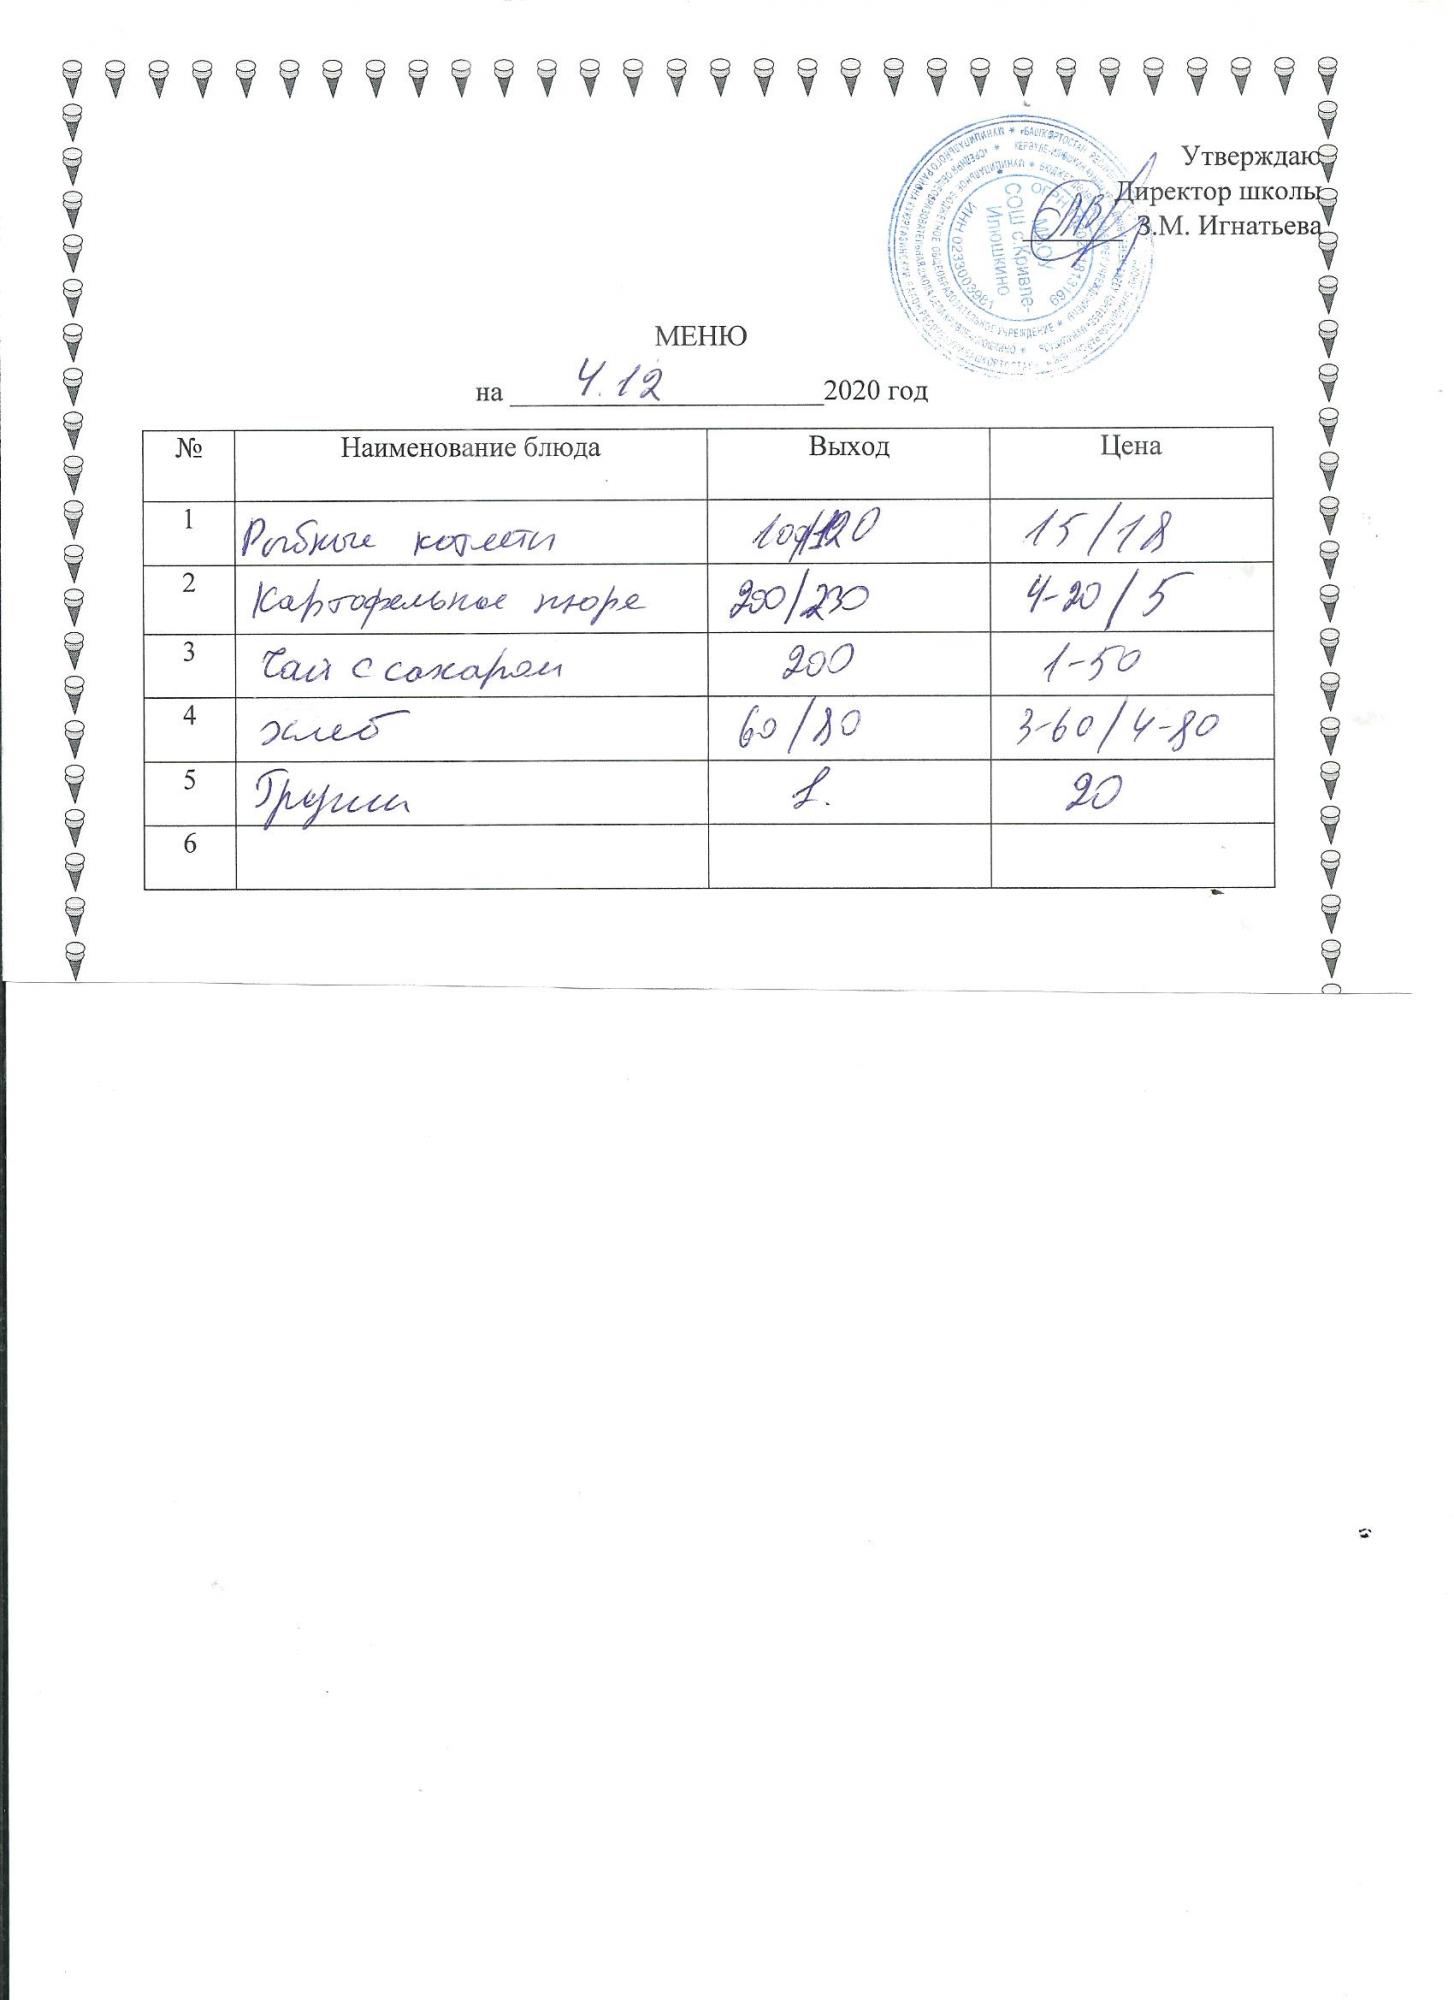 Утверждаю
Директор школы
З.М. Игнатьева
МБОУ
СОШ с.Кривле-
Илюшкино
ИНН 0233003981
МЕНЮ
на 4.12 2020 год
№ Наименование блюда Выход Цена
1 Рыбные котлеты 100/120 15/18
2 Картофельное пюре 200/230 4-20/5
3 Чай с сахаром 200 1-50
4 хлеб 60/80 3-60/4-80
5 Груши 1. 20
6